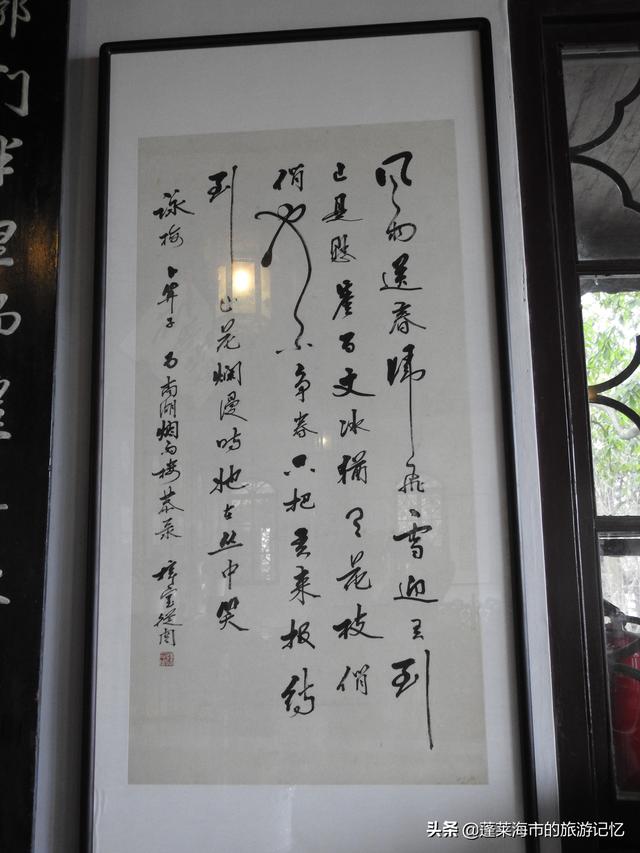 风雨送春歸飞雪迎春到
已是悬崖百丈冰猶有花枝俏
俏也不争春只把春来报待
到山花烂漫时她在丛中笑
咏梅 卜算子 为南湖烟雨楼恭录 梓室從周
头条 @蓬莱海市的旅游记忆